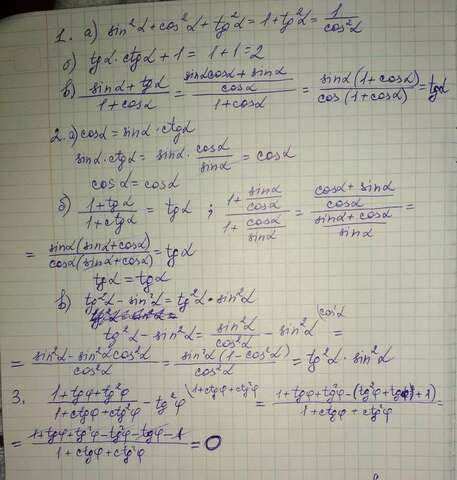 1. а) sin²α + cos²α + tg²α = 1 + tg²α = 1/cos²α
б) tgα · ctgα + 1 = 1 + 1 = 2
в) (sinα + tgα)/(1 + cosα) = ((sinα cosα + sinα)/cosα)/(1 + cosα) = sinα(1 + cosα)/cosα(1 + cosα) = tgα
2. а) cosα = sinα · ctgα
sinα · ctgα = sinα · cosα/sinα = cosα
cosα = cosα
б) (1 + tgα)/(1 + ctgα) = tgα ; (1 + sinα/cosα)/(1 + cosα/sinα) = ((cosα + sinα)/cosα)/((sinα + cosα)/sinα) =
= sinα(sinα + cosα)/cosα(sinα + cosα) = tgα
tgα = tgα
в) tg²α - sin²α = tg²α · sin²α
tg²α - sin²α = sin²α/cos²α - sin²α \cos²α =
= (sin²α - sin²α cos²α)/cos²α = sin²α(1 - cos²α)/cos²α = tg²α · sin²α
3. (1 + tgφ + tg²φ)/(1 + ctgφ + ctg²φ) - tg²φ \1 + ctgφ + ctg²φ = (1 + tgφ + tg²φ - (tg²φ + tgφ + 1))/(1 + ctgφ + ctg²φ) =
= (1 + tgφ + tg²φ - tg²φ - tgφ - 1)/(1 + ctgφ + ctg²φ) = 0